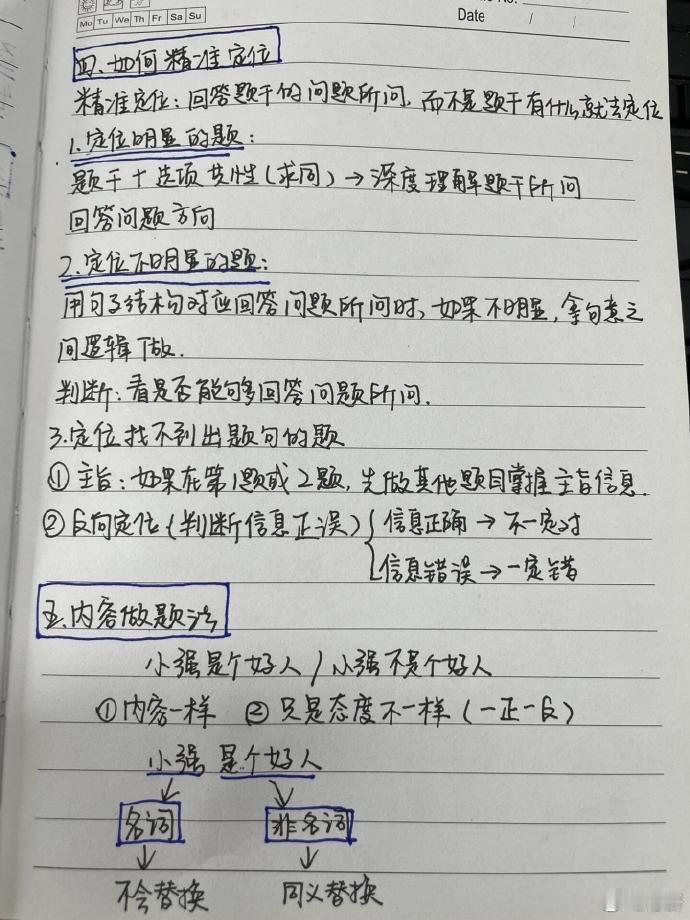 Mo Tu We Th Fr Sa Su
Date / /
四、如何精准定位
精准定位：回答题干的问题所问，而不是题干有什么就去定位
1.定位明显的题：
题干+选项共性(求同)→深度理解题干所问
回答问题方向
2.定位不明显的题：
用句子结构对应回答问题所问时，如果不明显，拿句意之
间逻辑做.
判断：看是否能够回答问题所问.
3.定位找不到出题句的题
①主旨：如果在第1题或2题，先做其他题目掌握主旨信息.
②反向定位(判断信息正误){信息正确→不一定对
信息错误→一定错
五.内容做题法
小强是个好人/小强不是个好人
①内容一样 ②只是态度不一样(一正一反)
小强 是个好人
名词 非名词
不会替换 同义替换